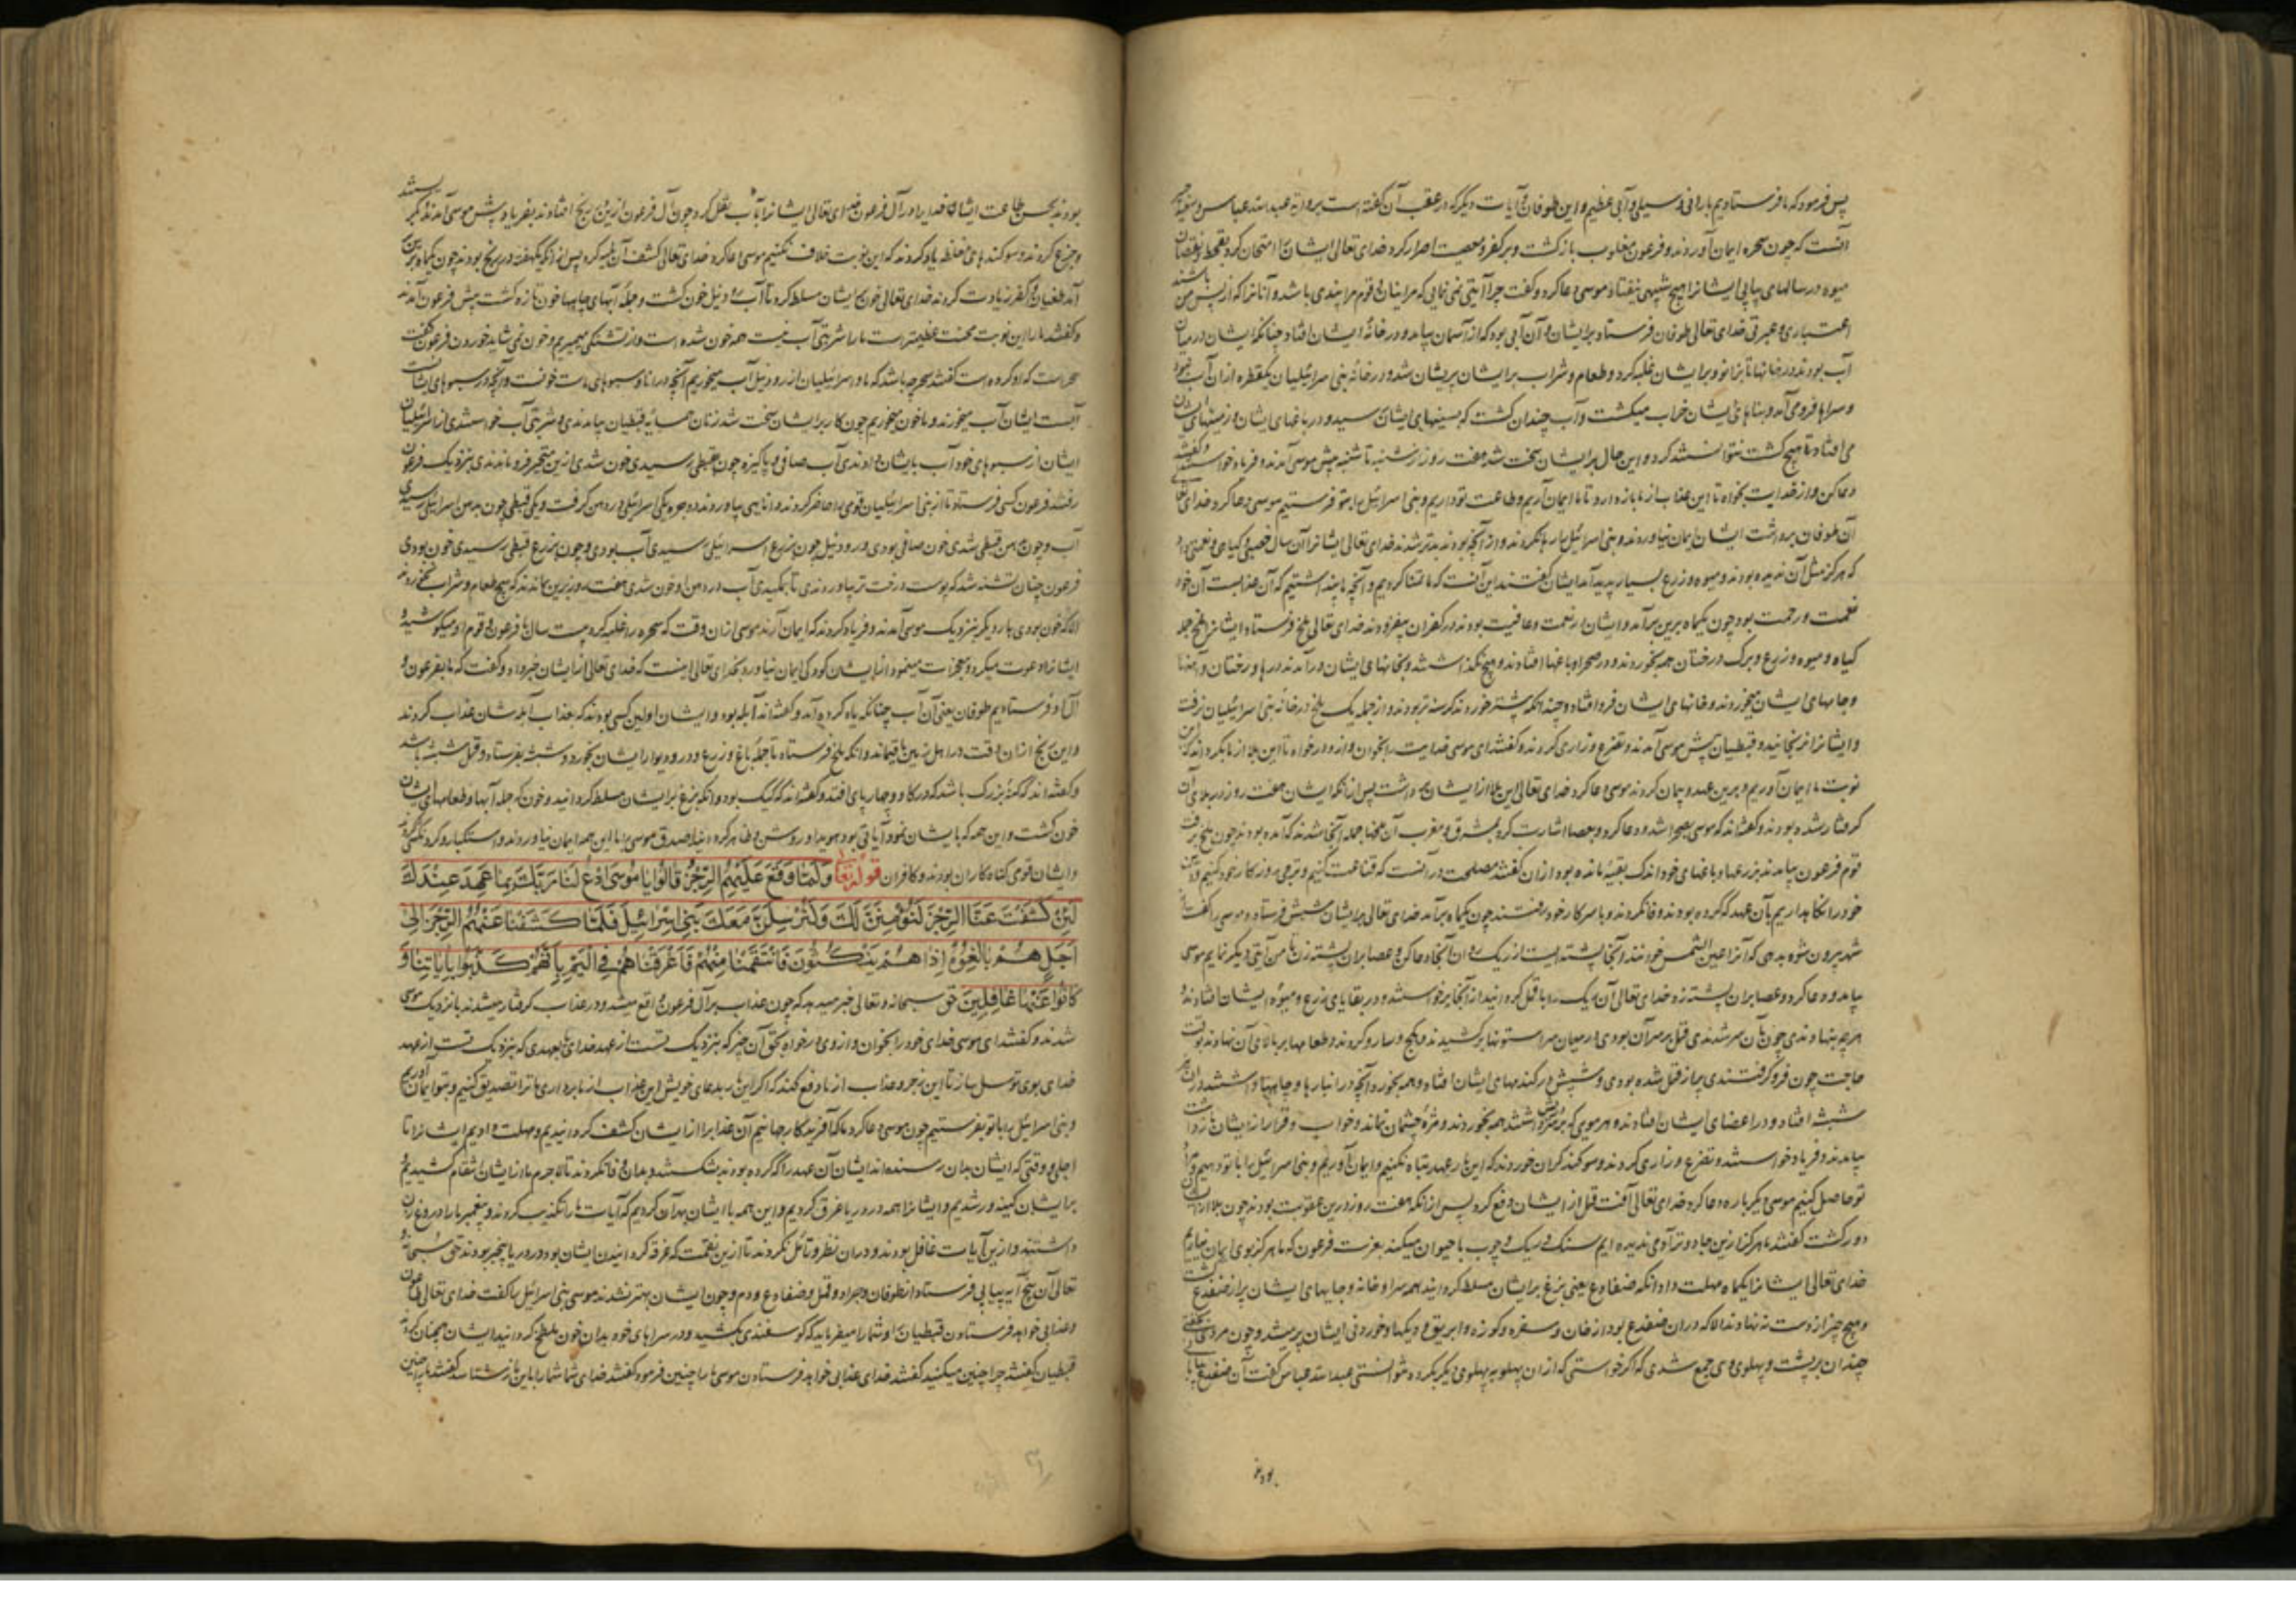 پس فرمود که ما فرستادیم بارانی و سیلی و آبی عظیم و این طوفان و آیات دیگر که در عقب آن گفته است بروایة عبد الله عباس و سعید
آنست که چون سحره ایمان آوردند و فرعون مغلوب بازگشت و بر کفر و معصیت اصرار کرد خدای تعالی ایشان را امتحان کرد بقحط و نقصان
میوه در سالهای پیاپی ایشانرا هیچ تنبیهی نیفتاد موسی دعا کرد و گفت چرا آیتی نمی نمایی که مر اینان و قوم مرا پندی باشد و آنانرا که از پس من
اعتباری و عبرتی خدای تعالی طوفان فرستاد بر ایشان و آن آبی بود که از آسمان بیامد و در خانهٔ ایشان افتاد چنانکه ایشان در میان
آب بودند در خانها تا بزانو و بر ایشان غلبه کرد و طعام و شراب بر ایشان پریشان شد و در خانهٔ بنی اسرائیلیان یکقطره ازان آب نبود
و سراها فرو می آمد و بناهای ایشان خراب میگشت و آب چندان گشت که بسینهای ایشان رسید و در باغهای ایشان و زمینهای ایشان
می افتاد تا هیچ کشت نتوانستند کرد و این حال بر ایشان سخت شد هفت روز از شنبه تا شنبه پیش موسی آمدند و فریاد خواستند و گفتند
دعا کن و از خدایت بخواه تا این عذاب از ما باز دارد تا ما ایمان آریم و طاعت تو داریم و بنی اسرائیل را بتو فرستیم موسی دعا کرد خدای تعالی
آن طوفان برداشت ایشان ایمان نیاوردند و بنی اسرائیل را رها نکردند و از آنچه بودند بدتر شدند خدای تعالی ایشانرا آن سال خصبی و گیاهی و نعمتی داد
که هرگز مثل آن ندیده بودند و میوه و زرع بسیار پدید آمد ایشان گفتند این آنست که ما تمنا کردیم و آنچه ما پنداشتیم که آن عذابست آن خود
نعمت و رحمت بود چون یکماه برین برآمد و ایشان در نعمت و عافیت بودند در کفران بیفزودند خدای تعالی ملخ فرستاد ایشانرا ملخ جمله
گیاه و میوه و زرع و برک درختان همه بخوردند و در صحرا و باغها افتادند و هیچ نگذاشتند و بخانهای ایشان درآمدند درها و درختان
و جامهای ایشان میخوردند و خانهای ایشان فرو افتاد و چندانکه بیشتر خوردند گرسنه تر بودند و از جمله یک ملخ در خانهٔ بنی اسرائیلیان نرفت
و ایشانرا نرنجانید و قبطیان پیش موسی آمدند و تضرع و زاری کردند و گفتند ای موسی خدایت را بخوان و از و درخواه تا این بلا از ما بگرداند که این
نوبت ما ایمان آوریم و برین عهد و پیمان کردند موسی دعا کرد خدای تعالی این بلا از ایشان برداشت پس از آنکه ایشان هفت روز در بلای آن
گرفتار شده بودند و گفته اند که موسی بصحرا شد و دعا کرد و بعصا اشارت کرد بمشرق و مغرب آن ملخها جمله آنجا شدند که آمده بودند چون ملخ برفت
قوم فرعون بیامدند بزرعها و باغهای خود اندک بقیهٔ مانده بود ازان گفتند مصلحت درآنست که قناعت کنیم و ترجی روزگار خود کنیم و دین
خود را نگاه داریم بآن عهد که کرده بودند وفا نکردند و با سر کار خود رفتند چون یکماه برآمد خدای تعالی بر ایشان شپش فرستاد و موسی را گفت از
شهر بیرون شو بدهی که آنرا عین الشمس خوانند و آنجا پشته ایست از ریک روان آنجا دعا کن و عصا بران پشته زن تا من آیتی دیگر نمایم موسی
بیامد و دعا کرد و عصا بران پشته زد خدای تعالی آن ریک را با قمل گردانید از آنجا برخواستند و در بقایای زرع و میوهٔ ایشان افتادند
هرچه بنهادندی چون بآن سر شدندی قمل بر سر آن بودی در میان سرا ستونها برکشیدند و بگچ و سارو کردند و طعامها بر بالای آن نهادند بوقت
حاجت چون فرو گرفتندی پر از قمل شده بودی و شپش در گندمهای ایشان افتاد و همه بخورد و آنچه در انبارها و جامها داشتند دران هم
شپش افتاد و در اعضای ایشان افتادند و هر مویی که بر تن داشتند همه بخوردند و مژهٔ چشمان نماند و خواب و قرار از ایشان زدا
بیامدند و فریاد خواستند و تضرع و زاری کردند و سوگند گران خوردند که این بار عهد تباه نکنیم و ایمان آوریم و بنی اسرائیل را با تو دهیم و مراد
تو حاصل کنیم موسی دیگر باره دعا کرد خدای تعالی آفت قمل از ایشان دفع کرد پس از آنکه هفت روز درین عقوبت بودند چون بلا از ایشان
دور گشت گفتند ما هرگز ازین جادو تر آدمی ندیده ایم سنگ و ریک و چوب با حیوان میکند بعزت فرعون که ما هرگز بوی ایمان نیاریم
خدای تعالی ایشانرا یکماه مهلت داد آنگه ضفادع یعنی بزغ بر ایشان مسلط گردانید همه سرا و خانه و جایهای ایشان پر از ضفدع گشت
و هیچ چیز از دست ننهادند الا که دران ضفدع بود از خان و سفره و کوزه و ابریق و دیکها و خوردنی ایشان پر میشد و چون مردی بخفتی
چندان بر پشت و پهلوی وی جمع شدی که اگر خواستی که ازان پهلو به پهلوی دیگر بگردد نتوانستی عبد الله عباس گفت آن ضفدع بیابانی
بودند
بودند بحسن طاعت ایشان خدایرا در آل فرعون خدای تعالی ایشانرا بآب نقل کرد چون آل فرعون ازین رنج افتادند بفریاد پیش موسی آمدند و بگریستند
و جزع کردند و سوگندهای مغلظه یاد کردند که این نوبت خلاف نکنیم موسی دعا کرد خدای تعالی کشف آن بلیه کرد پس از آنکه یکهفته در رنج بودند چون یکماه برین
آمد طغیان و کفر زیادت کردند خدای تعالی خون بر ایشان مسلط کرد تا آب رود نیل خون گشت و جملهٔ آبهای چاهها خون تازه گشت پیش فرعون آمدند
و گفتند ما را این نوبت محنت عظیمتر است ما را شربتی آب نیست همه خون شده است و از تشنگی میمیریم و خون نمی شاید خوردن فرعون گفت
سحر است که او کرده است گفتند سحر چه باشد که ما و اسرائیلیان از رود نیل آب میخوریم آنچه در اناء و سبوهای ماست خونست و آنچه در سبوهای ایشانست
آبست ایشان آب میخورند و ما خون میخوریم چون کار بر ایشان سخت شد زنان همسایهٔ قبطیان بیامدندی و شربتی آب خواستندی از اسرائیلیان
ایشان از سبوهای خود آب بایشان دادندی آب صافی و پاکیزه چون بقبطی رسیدی خون شدی ازین متحیر فرو ماندندی بنزدیک فرعون
رفتند فرعون کس فرستاد تا از بنی اسرائیلیان قومی را حاضر کردند و انایی بیاوردند دو جره یکی اسرائیلی در دهن گرفت و یکی قبطی چون بدهن اسرائیلی رسیدی
آب و چون بدهن قبطی شدی خون صافی بودی و رود نیل چون بزرع اسرائیلی رسیدی آب بودی و چون بزرع قبطی رسیدی خون بودی
فرعون چنان تشنه شد که پوست درخت تر بیاوردندی تا بمکیدی آب در دهن او خون شدی هفت روز برین بماندند که هیچ طعام و شراب نخوردند
الا که خون بودی بار دیگر بنزدیک موسی آمدند و فریاد کردند که ایمان آرند موسی ازان وقت که سحره را غلبه کرد بیست سال با فرعون و قوم او میکوشید و
ایشانرا دعوت میکرد و معجزات مینمود از ایشان کودکی ایمان نیاورد بخدای تعالی اینست که خدای تعالی از ایشان خبر داد و گفت که ما بفرعون و
آل او فرستادیم طوفان یعنی آن آب چنانکه یاد کرده آمد و گفته اند آبله بود و ایشان اولین کسی بودند که بعذاب آبله شان عذاب کردند
و این رنج ازان وقت در اهل زمین باقیماند و آنکه ملخ فرستاد تا جملهٔ باغ و زرع و در و دیوار ایشان بخورد و شپشه بفرستاد و قمل شپشه باشد
و گفته اند که کنهٔ بزرگ باشد که در گاو و چهارپای افتد و گفته اند که کیک بود و آنکه بزغ بر ایشان مسلط گردانید و خون که جمله آبها و طعامهای ایشان
خون گشت و این همه که بایشان نمود آیاتی بود هویدا و روشن و ظاهر کرده اینها صدق موسی را با این همه ایمان نیاوردند و استکبار و گردنکشی کردند
و ایشان قومی گناه کاران بودند و کافران قوله تعالی وَلَمَّا وَقَعَ عَلَيْهِمُ الرِّجْزُ قَالُوا يَا مُوسَى ادْعُ لَنَا رَبَّكَ بِمَا عَهِدَ عِنْدَكَ
لَئِنْ كَشَفْتَ عَنَّا الرِّجْزَ لَنُؤْمِنَنَّ لَكَ وَلَنُرْسِلَنَّ مَعَكَ بَنِي اِسْرَائِيلَ فَلَمَّا كَشَفْنَا عَنْهُمُ الرِّجْزَ اِلَى
اَجَلٍ هُمْ بَالِغُوهُ اِذَا هُمْ يَنْكُثُونَ فَانْتَقَمْنَا مِنْهُمْ فَاَغْرَقْنَاهُمْ فِي الْيَمِّ بِاَنَّهُمْ كَذَّبُوا بِاٰيَاتِنَا وَ
كَانُوا عَنْهَا غَافِلِينَ حق سبحانه و تعالی خبر میدهد که چون عذاب بر آل فرعون واقع میشد و در عذاب گرفتار میشدند بانزدیک موسی
شدند و گفتند ای موسی خدای خود را بخوان و از وی درخواه بحق آن چیز که بنزدیک تست از عهد خدای بعهدی که بنزدیک تست از عهد
خدای بوی توسل ساز تا این زجر و عذاب از ما دفع کند که اگر این بار بدعای خویش این عذاب از ما برداری ما ترا تصدیق کنیم و بتو ایمان آوریم
و بنی اسرائیل را با تو بفرستیم چون موسی دعا کرد ما که آفریدگار جهانیم آن عذاب را از ایشان کشف گردانیدیم و مهلت دادیم ایشانرا تا
اجل و وقتی که ایشان بدان رسنده اند ایشان آن عهد را که کرده بودند بشکستند و بدان وفا نکردند تا لاجرم ما از ایشان انتقام کشیدیم و
بر ایشان کینه ور شدیم و ایشانرا همه در دریا غرق کردیم و این همه با ایشان بدآن کردیم که آیات ما را تکذیب کردند و پیغمبر ما را دروغ زن
داشتند و ازین آیات غافل بودند و دران نظر و تأمل نکردند تا ازین نقمت که غرقه گردانیدن ایشان بود در دریا بیخبر بودند حق سبحانه و
تعالی آن پنج آیه پیاپی فرستاد از طوفان و جراد و قمل و ضفادع و دم و چون ایشان بهتر نشدند موسی بنی اسرائیل را گفت خدای تعالی طاعون
و عذابی خواهد فرستادن قبطیان را و شما را میفرماید که گوسفندی بکشید و در سراهای خود بدان خون ملطخ گردانید ایشان همچنان کردند
قبطیان گفتند چرا چنین میکنید گفتند خدای عذابی خواهد فرستادن موسی ما را چنین فرمود گفتند خدای شما شما را باین باز شناسد گفتند ما را چنین